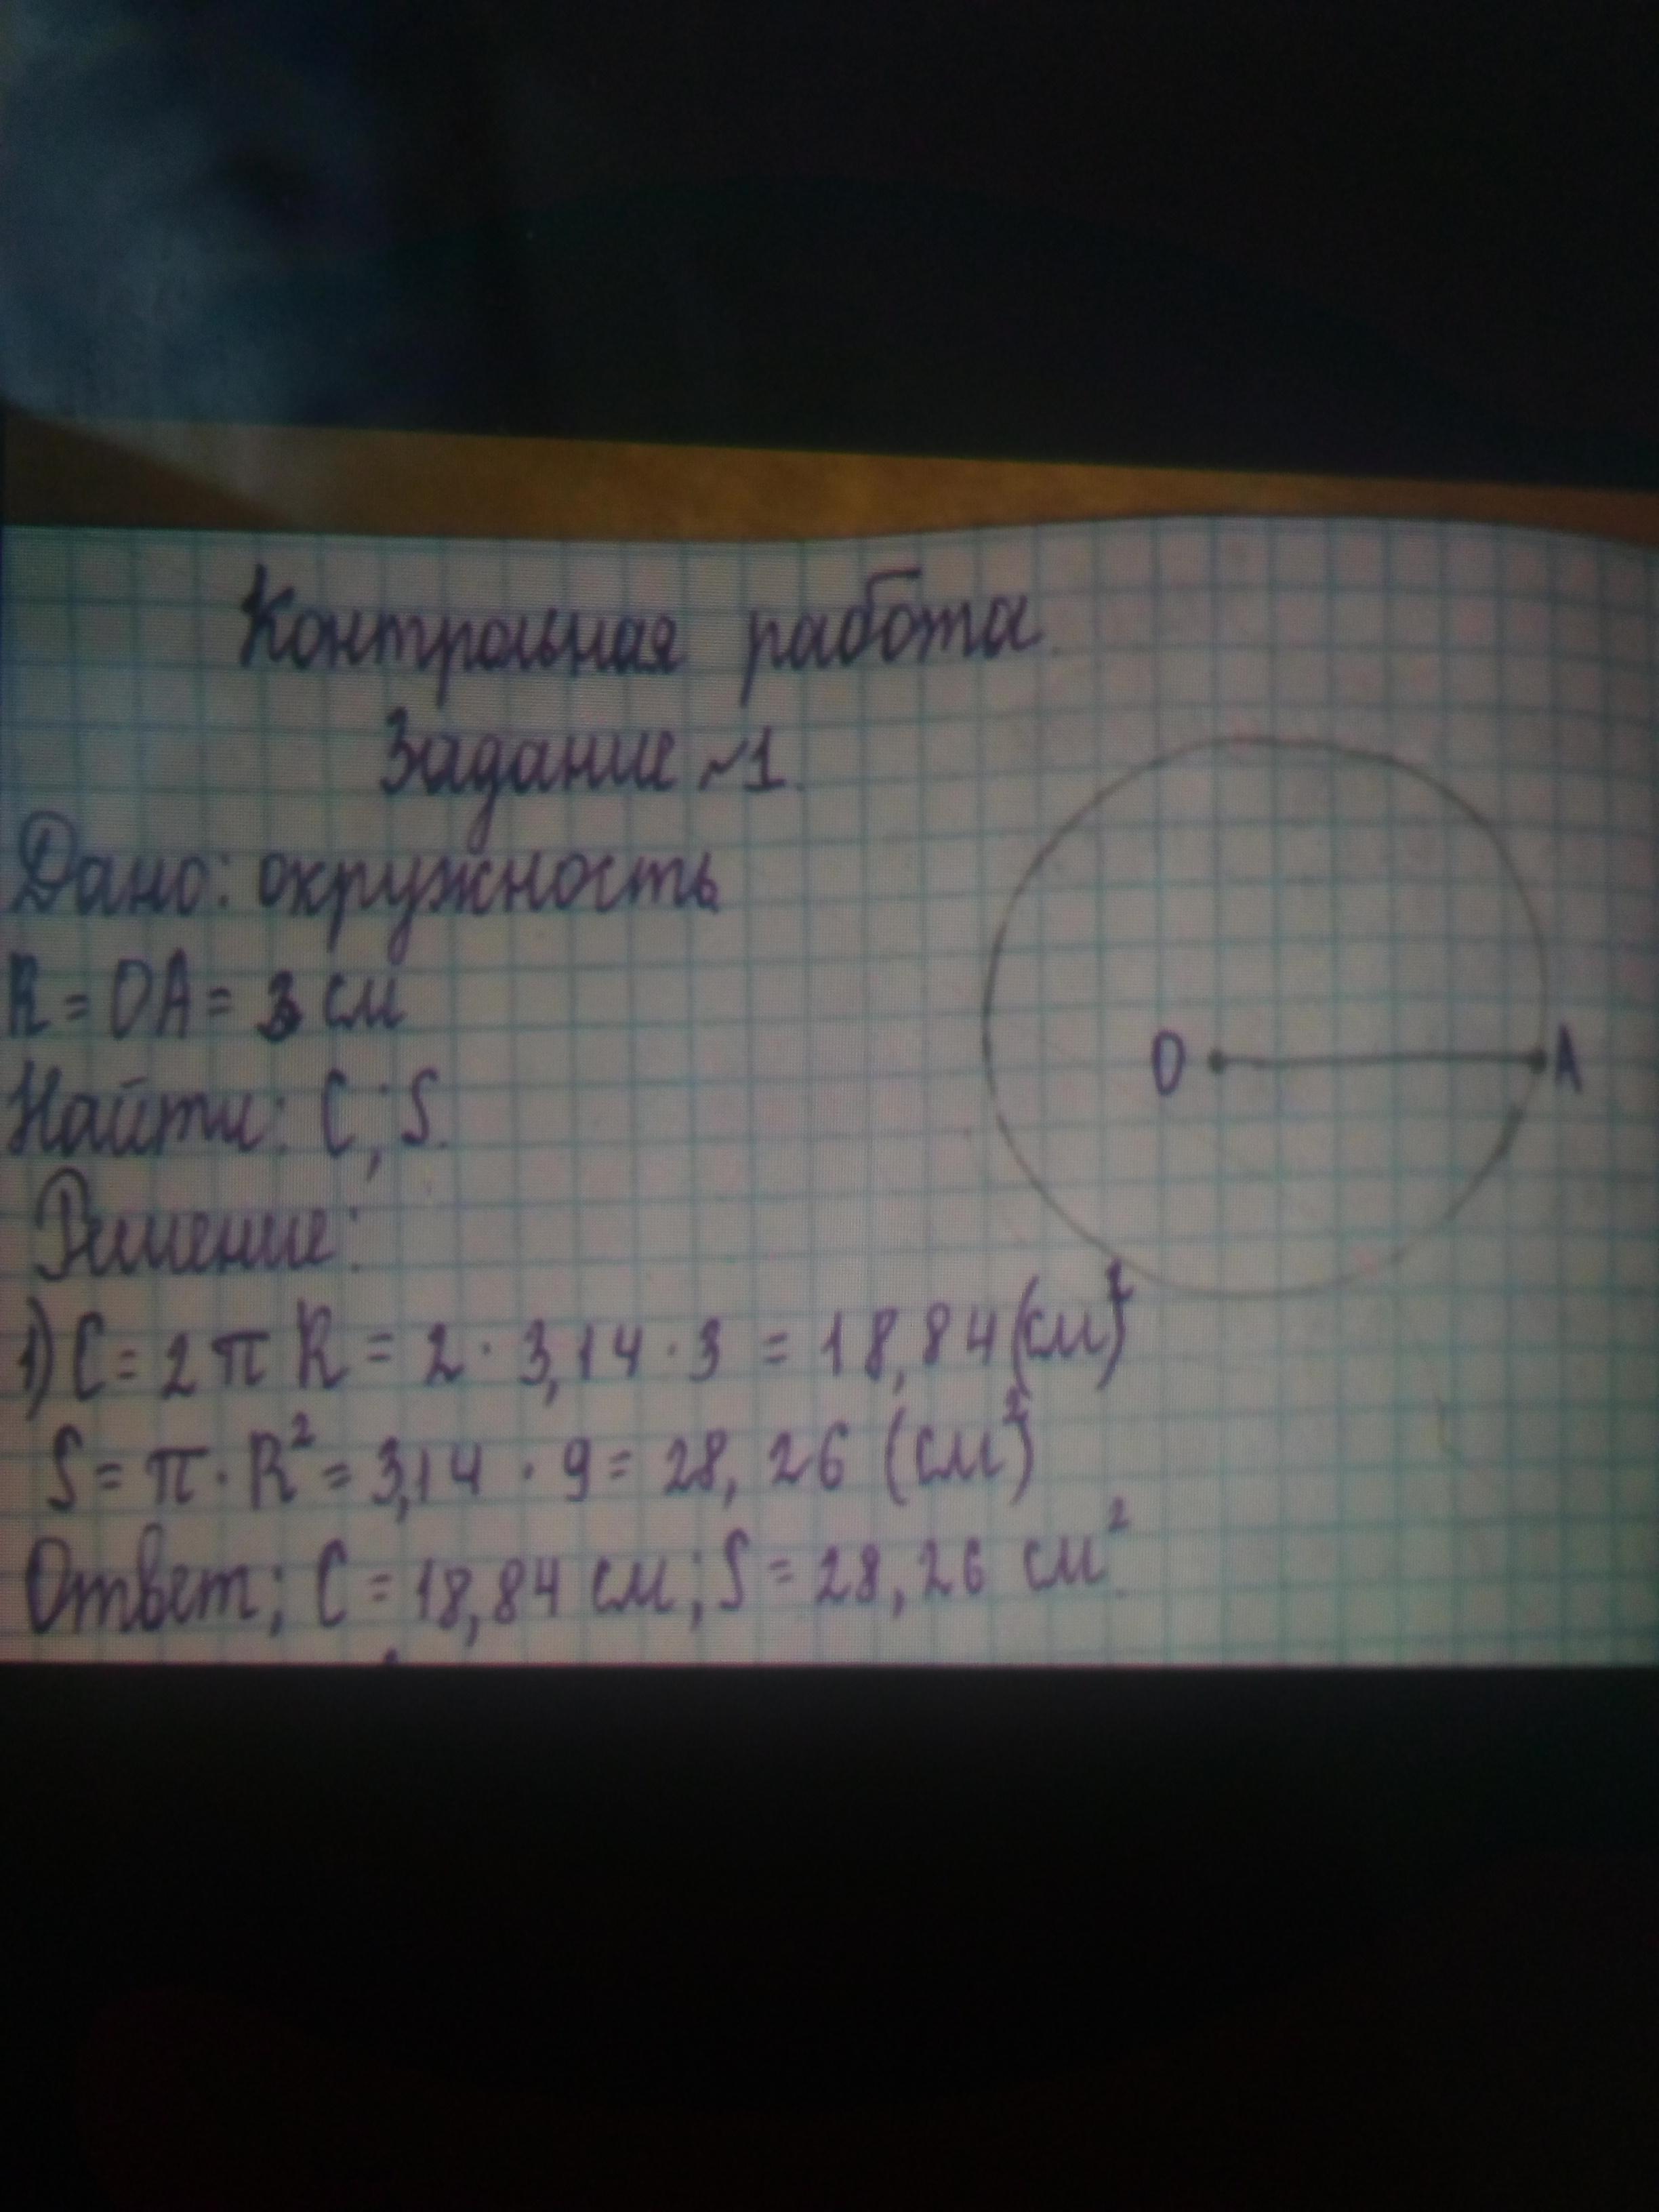 Контрольная работа.
Задание №1.
Дано: окружность
R = OA = 3 см
Найти: C; S.
O A
Решение:
1) C = 2 π R = 2 · 3,14 · 3 = 18,84 (см)²
S = π · R² = 3,14 · 9 = 28,26 (см²)
Ответ; C = 18,84 см; S = 28,26 см².